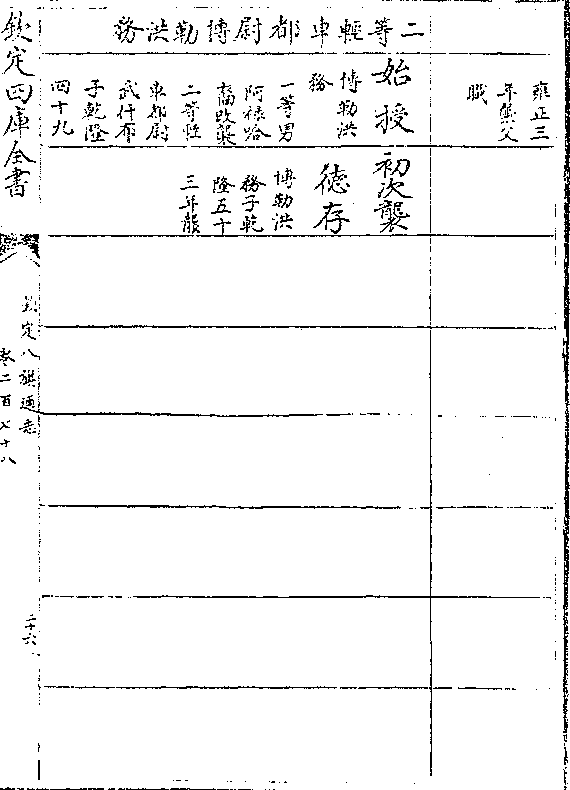 雍正三
年襲父
職
二等輕車都尉博勒洪務
始授
博勒洪
務
一等男
阿祿哈
畜改襲
二等輕
車都尉
武什布
子乾隆
四十九
初次襲
德存
博勒洪
務子乾
隆五十
三年襲
欽定四庫全書
欽定八旗通志
卷二百七十八
二十六